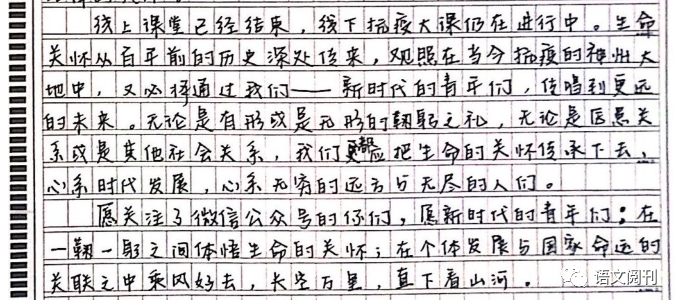 线上课堂已经结束，线下抗疫大课仍在进行中。生命
关怀从百年前的历史深处传来，观照在当今抗疫的神州大
地中，又必将通过我们——新时代的青年们，传唱到更远
的未来。无论是有形或是无形的鞠躬之礼，无论是医患关
系或是其他社会关系，我们都应把生命的关怀传承下去，
心系时代发展，心系无穷的远方与无尽的人们。
愿关注了微信公众号的你们，愿新时代的青年们：在
一鞠一躬之间体悟生命的关怀；在个体发展与国家命运的
关联之中乘风好去，长空万里，直下看山河。
语文阅刊